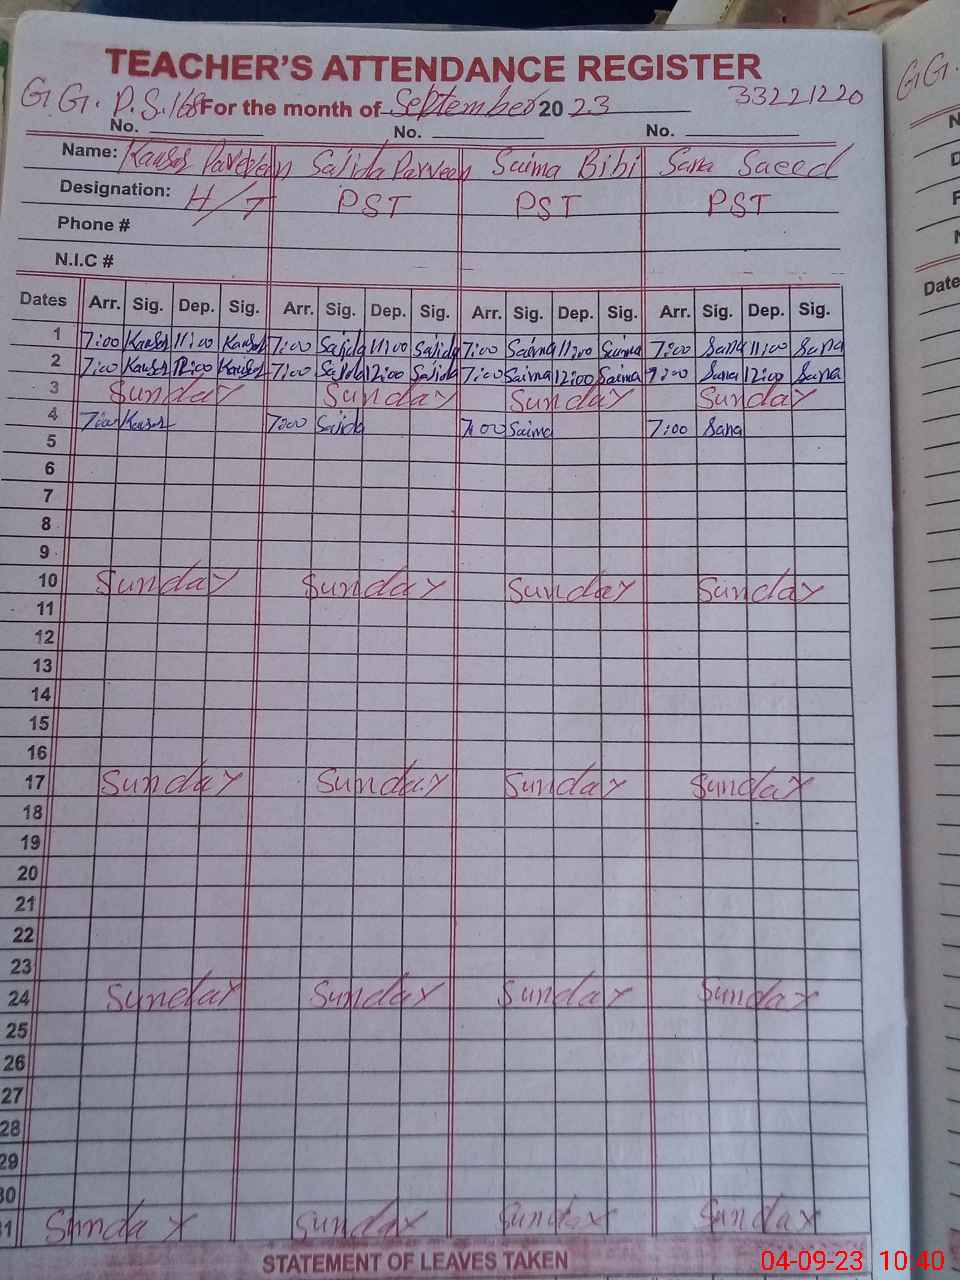 TEACHER'S ATTENDANCE REGISTER
G G. P. S. 168 For the month of September 20 23 33221220
No. No. No.
Name: Kausar Parveen Sajida Parveen Saima Bibi Sana Saeed
Designation: H/T PST PST PST
Phone #
N.I.C #
Dates Arr. Sig. Dep. Sig. Arr. Sig. Dep. Sig. Arr. Sig. Dep. Sig. Arr. Sig. Dep. Sig.
1 7:00 Kausar 11:00 Kausar 7:00 Sajida 11:00 Sajida 7:00 Saima 11:00 Saima 7:00 Sana 11:00 Sana
2 7:00 Kausar 12:00 Kausar 7:00 Sajida 12:00 Sajida 7:00 Saima 12:00 Saima 7:00 Sana 12:00 Sana
3 Sunday Sunday Sunday Sunday
4 7:00 Kausar 7:00 Sajida 7:00 Saima 7:00 Sana
5
6
7
8
9
10 Sunday Sunday Sunday Sunday
11
12
13
14
15
16
17 Sunday Sunday Sunday Sunday
18
19
20
21
22
23
24 Sunday Sunday Sunday Sunday
25
26
27
28
29
30
31 Sunday Sunday Sunday Sunday
STATEMENT OF LEAVES TAKEN
04-09-23 10:40
GG.
Date